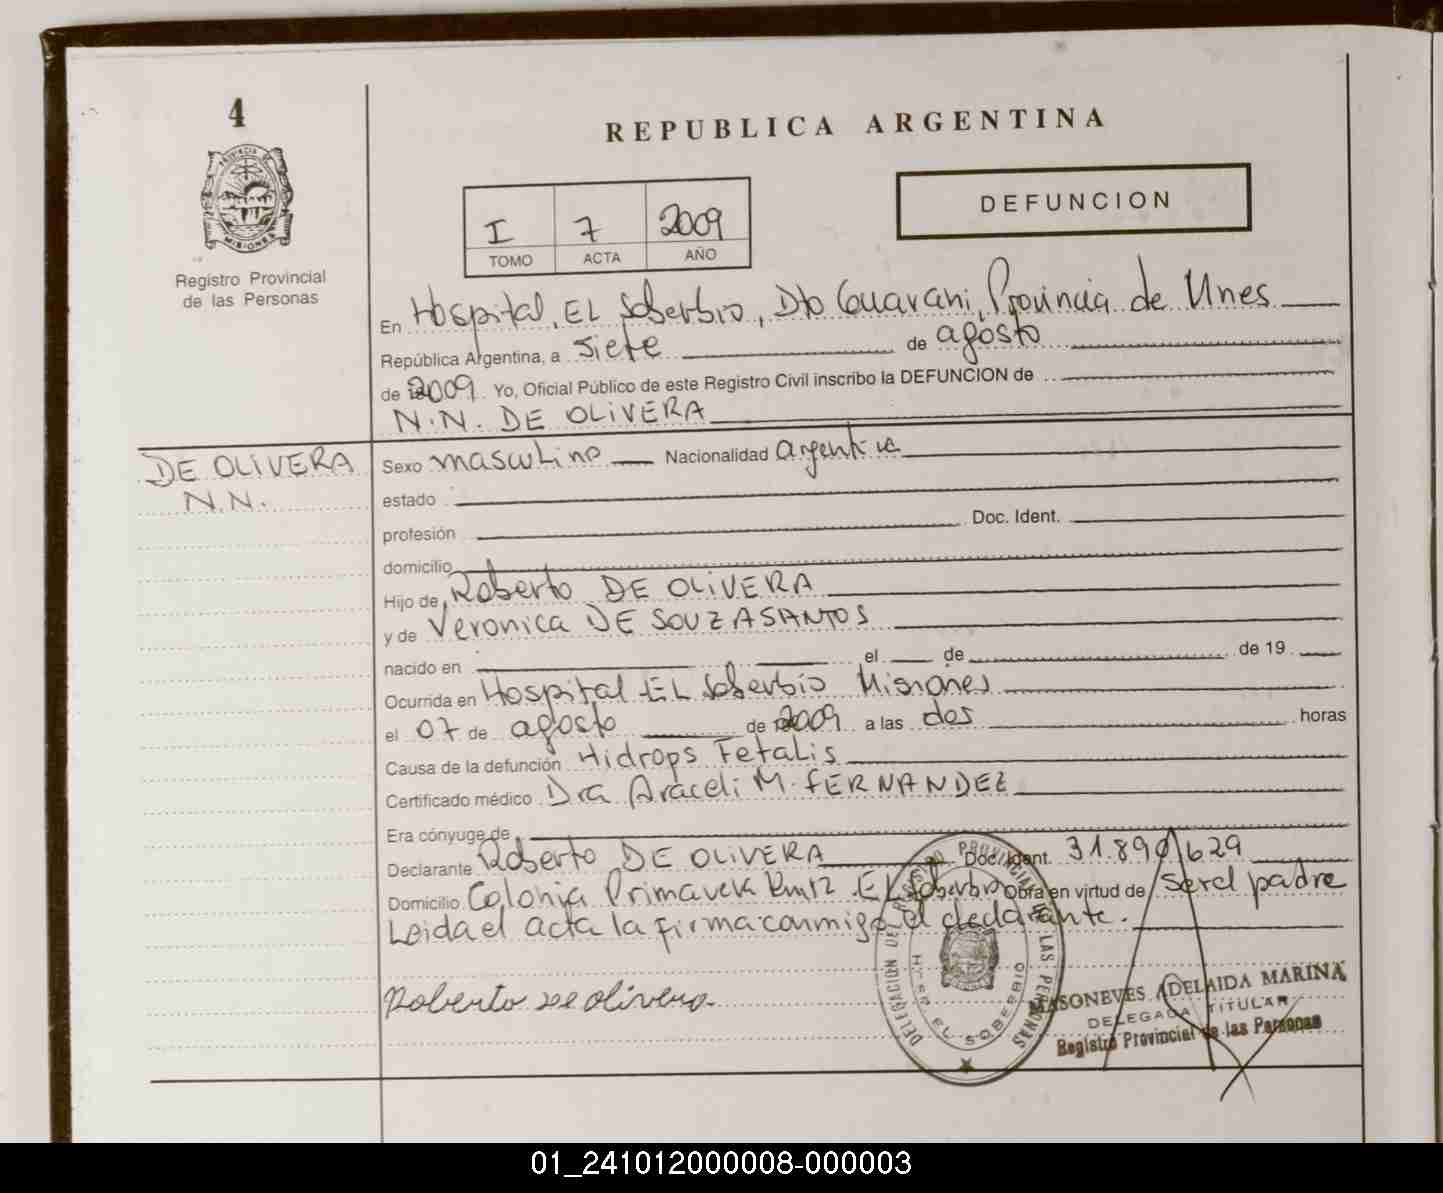 4
REPUBLICA ARGENTINA
PROVINCIA DE
MISIONES
Registro Provincial
de las Personas
I 7 2009
TOMO ACTA AÑO
DEFUNCION
En Hospital, EL Soberbio, Dto Guarani, Provincia de Mnes
República Argentina, a siete de agosto
de 2009 Yo, Oficial Público de este Registro Civil inscribo la DEFUNCION de
N.N. DE OLIVERA
DE OLIVERA
N.N.
Sexo masculino Nacionalidad Argentina
estado
profesión Doc. Ident.
domicilio
Hijo de Roberto DE OLIVERA
y de Veronica DE SOUZA SANTOS
nacido en el de de 19
Ocurrida en Hospital EL Soberbio Misiones
el 07 de agosto de 2009 a las dos horas
Causa de la defunción Hidrops Fetalis
Certificado médico Dra Araceli M. FERNANDEZ
Era cónyuge de
Declarante Roberto DE OLIVERA Doc. Ident. 31.890.629
Domicilio Colonia Primavera Km 12 EL Soberbio Obra en virtud de ser el padre
Leida el acta la firma conmigo el declarante.
Roberto de olivera
DELEGACION DEL REGISTRO PROVINCIAL DE LAS PERSONAS
EL SOBERBIO
MASONEVES ADELAIDA MARINA
DELEGADA TITULAR
Registro Provincial de las Personas
01_241012000008-000003